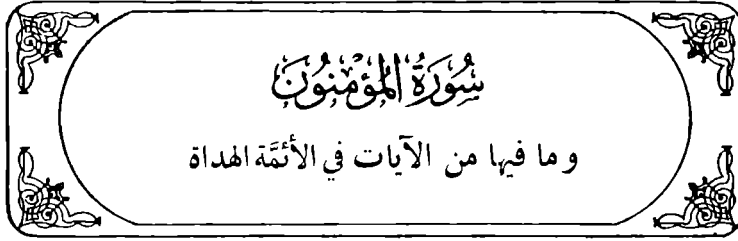 سُورَةُ المُؤْمِنُونَ
و ما فيها من الآيات في الأئمَّة الهداة